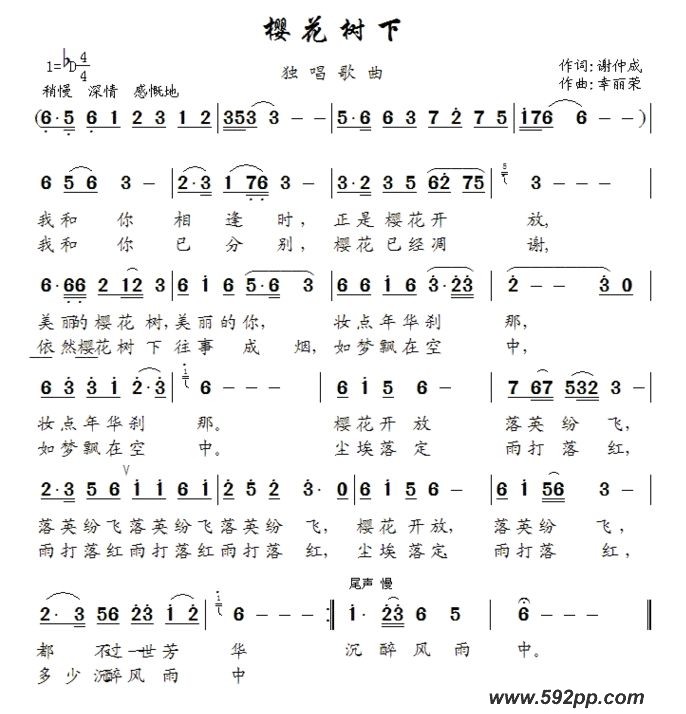 樱花树下
1=♭D 4/4
独唱歌曲
作词:谢仲成
作曲:幸丽荣
稍慢 深情 感慨地
(6·5 6 1 2 3 1 2 | 353 3 - - | 5·6 6 3 7 2 7 5 | i76 6 - - ) |
6 5 6 3 - | 2·3 1 76 3 - | 3·2 3 5 62 75 | 5 3 - - - |
我和你相逢时,正是樱花开放,
我和你已分别,樱花已经凋谢,
6·66 2 12 3 | 6 i 6 5·6 | 6 i 6 i6 3·23 | 2 - - 3 0 |
美丽的樱花树,美丽的你,妆点年华刹那,
依然樱花树下往事成烟,如梦飘在空中,
6 3 3 i 2·3 | i 6 - - - | 6 i 5 6 - | 7 67 532 3 - |
妆点年华刹那。樱花开放落英纷飞,
如梦飘在空中。尘埃落定雨打落红,
2·3 5 6 V i i 6 i | 2 5 2 3·0 | 6 i 5 6 - | 6 i 56 3 - |
落英纷飞落英纷飞落英纷飞,樱花开放,落英纷飞,
雨打落红雨打落红雨打落红,尘埃落定,雨打落红,
尾声 慢
2·3 56 23 i 2 | i 6 - - - :‖ i·23 6 5 | 6 - - - ‖
都不过一世芳华沉醉风雨中。
多少沉醉风雨中
www.592pp.com